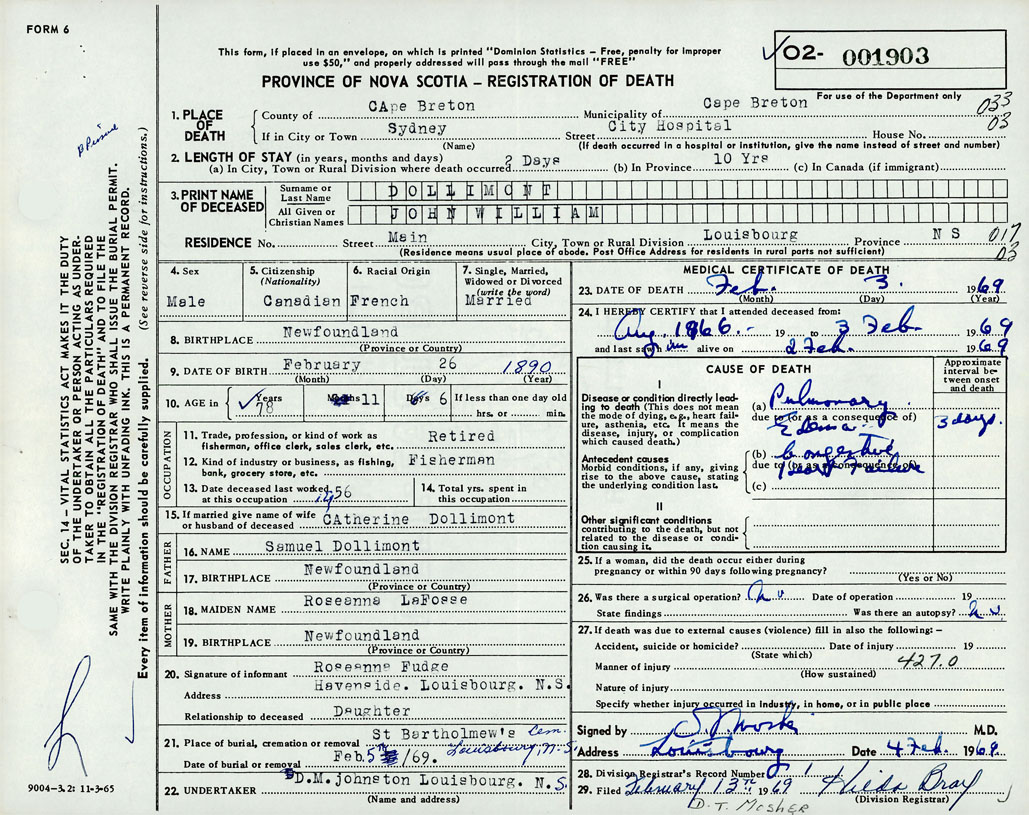 FORM 6
This form, if placed in an envelope, on which is printed "Dominion Statistics – Free, penalty for improper
use $50," and properly addressed will pass through the mail "FREE"
PROVINCE OF NOVA SCOTIA – REGISTRATION OF DEATH
O2- 001903
For use of the Department only
1. PLACE OF DEATH
County of CApe Breton Municipality of Cape Breton 033
If in City or Town Sydney Street City Hospital House No. 03
(Name) (If death occurred in a hospital or institution, give the name instead of street and number)
2. LENGTH OF STAY (in years, months and days)
(a) In City, Town or Rural Division where death occurred 2 Days (b) In Province 10 Yrs (c) In Canada (if immigrant)
3. PRINT NAME OF DECEASED
Surname or Last Name DOLLIMONT
All Given or Christian Names JOHN WILLIAM
RESIDENCE No. Street Main City, Town or Rural Division Louisbourg Province N S 017
(Residence means usual place of abode. Post Office Address for residents in rural parts not sufficient) 03
4. Sex
Male
5. Citizenship (Nationality)
Canadian
6. Racial Origin
French
7. Single, Married, Widowed or Divorced (write the word)
Married
8. BIRTHPLACE Newfoundland
(Province or Country)
9. DATE OF BIRTH February 26 1890
(Month) (Day) (Year)
10. AGE in Years 78 Months 11 Days 6 If less than one day old
hrs. or min.
OCCUPATION
11. Trade, profession, or kind of work as fisherman, office clerk, sales clerk, etc. Retired
12. Kind of industry or business, as fishing, bank, grocery store, etc. Fisherman
13. Date deceased last worked at this occupation 1956
14. Total yrs. spent in this occupation
15. If married give name of wife or husband of deceased CAtherine Dollimont
FATHER
16. NAME Samuel Dollimont
17. BIRTHPLACE Newfoundland
(Province or Country)
MOTHER
18. MAIDEN NAME Roseanna LaFosse
19. BIRTHPLACE Newfoundland
(Province or Country)
20. Signature of informant Roseanne Fudge
Address Havenside. Louisbourg. N.S.
Relationship to deceased Daughter
21. Place of burial, cremation or removal St Bartholmew's Cem.
Louisbourg, N.S.
Date of burial or removal Feb. 5th /69.
22. UNDERTAKER D.M. johnston Louisbourg. N.S.
(Name and address)
MEDICAL CERTIFICATE OF DEATH
23. DATE OF DEATH Feb. 3. 1969
(Month) (Day) (Year)
24. I HEREBY CERTIFY that I attended deceased from:
Aug. 1966.- 19 to 3 Feb. 1969
and last saw him alive on 2 Feb. 1969
CAUSE OF DEATH
Approximate interval between onset and death
I
Disease or condition directly leading to death (This does not mean the mode of dying, e.g., heart failure, asthenia, etc. It means the disease, injury, or complication which caused death.)
(a) Pulmonary
due to (or as a consequence of)
Edema 3 days.
Antecedent causes
Morbid conditions, if any, giving rise to the above cause, stating the underlying condition last.
(b) Congestive
due to (or as a consequence of)
Heart Failure
(c)
II
Other significant conditions
contributing to the death, but not related to the disease or condition causing it.
25. If a woman, did the death occur either during
pregnancy or within 90 days following pregnancy?
(Yes or No)
26. Was there a surgical operation? No Date of operation 19
State findings Was there an autopsy? No
27. If death was due to external causes (violence) fill in also the following: –
Accident, suicide or homicide? Date of injury 19
(State which)
Manner of injury 427.0
(How sustained)
Nature of injury
Specify whether injury occurred in Industry, in home, or in public place
Signed by M.D.
Address Louisbourg Date 4 Feb. 1969
28. Division Registrar's Record Number 1
29. Filed February 13th 1969 Hilda Bray
(Division Registrar)
D.T. MOSHER
SEC. 14 – VITAL STATISTICS ACT MAKES IT THE DUTY
OF THE UNDERTAKER OR PERSON ACTING AS UNDER-
TAKER TO OBTAIN ALL THE PARTICULARS REQUIRED
IN THE "REGISTRATION OF DEATH" AND TO FILE THE
SAME WITH THE DIVISION REGISTRAR WHO SHALL ISSUE THE BURIAL PERMIT.
WRITE PLAINLY WITH UNFADING INK. THIS IS A PERMANENT RECORD.
Every item of information should be carefully supplied. (See reverse side for instructions.)
9004-3.2: 11-3-65